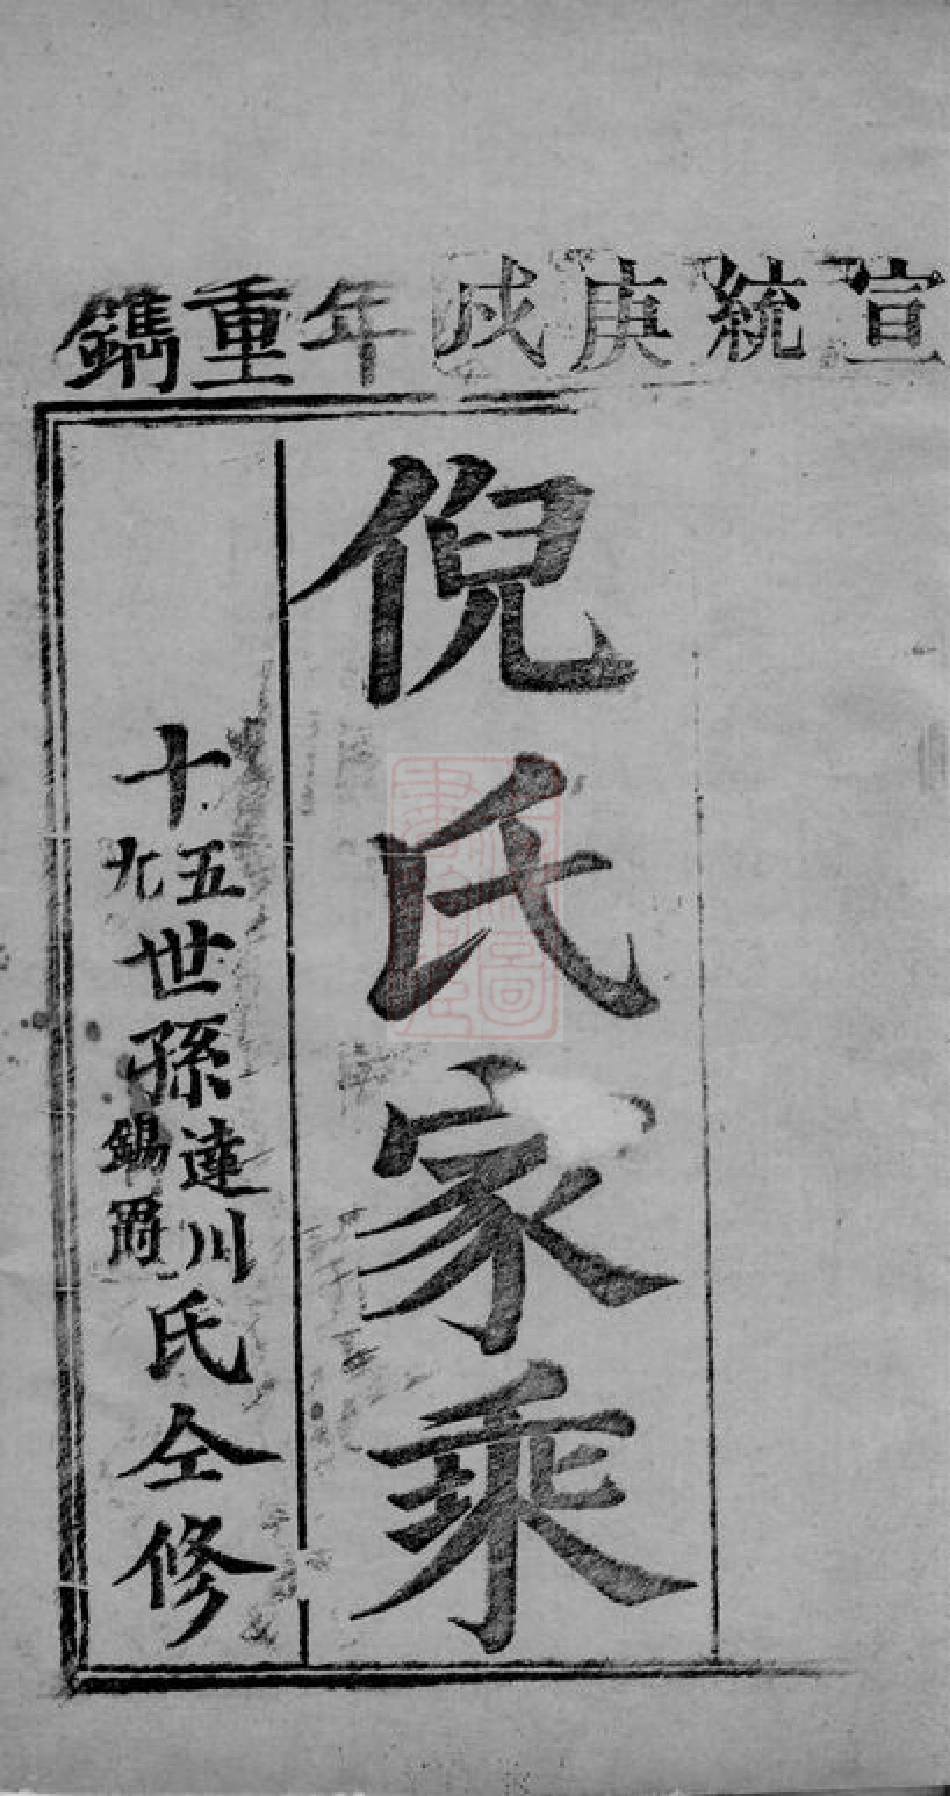 宣統庚戌年重鐫
倪氏家乘
十五九世孫達川錫爵氏仝修